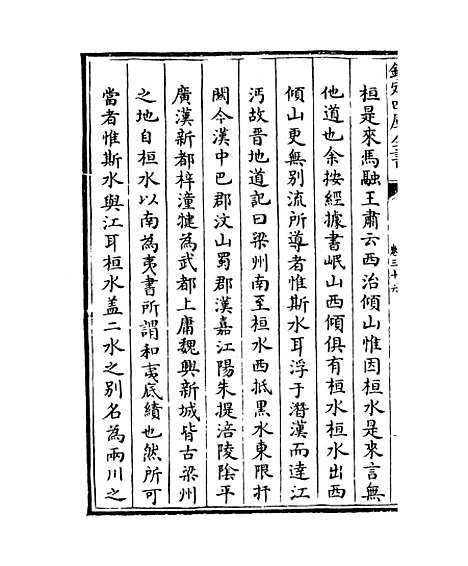 欽定四庫全書
卷三十六
桓是來馬融王肅云西治傾山惟因桓水是來言無
他道也余按經據書岷山西傾俱有桓水桓水出西
傾山更無別流所導者惟斯水耳浮于潛漢而達江
沔故晉地道記曰梁州南至桓水西抵黑水東限扞
闗今漢中巴郡汶山蜀郡漢嘉江陽朱提涪陵陰平
廣漢新都梓潼犍為武都上庸魏興新城皆古梁州
之地自桓水以南為夷書所謂和夷底績也然所可
當者惟斯水與江耳桓水盖二水之别名為兩川之